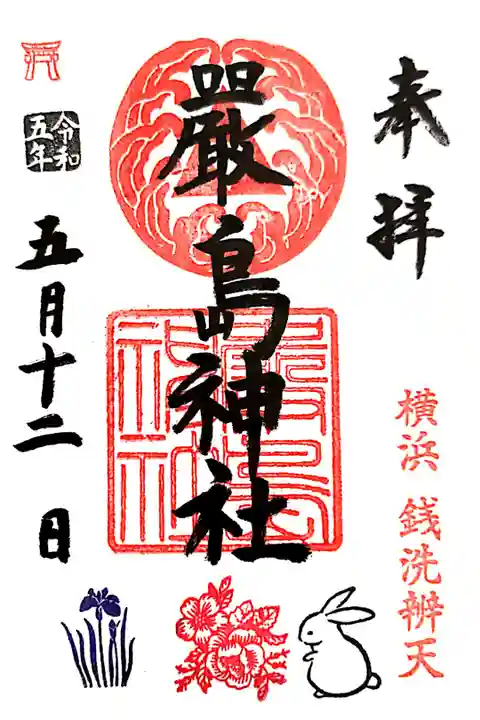 奉拝
横浜 銭洗辨天
嚴島神社
嚴島
神社
令和
五年
五月十二日